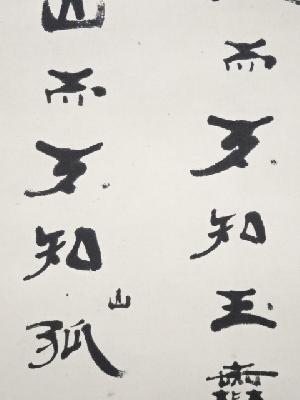 而不知玉
而不知山孤